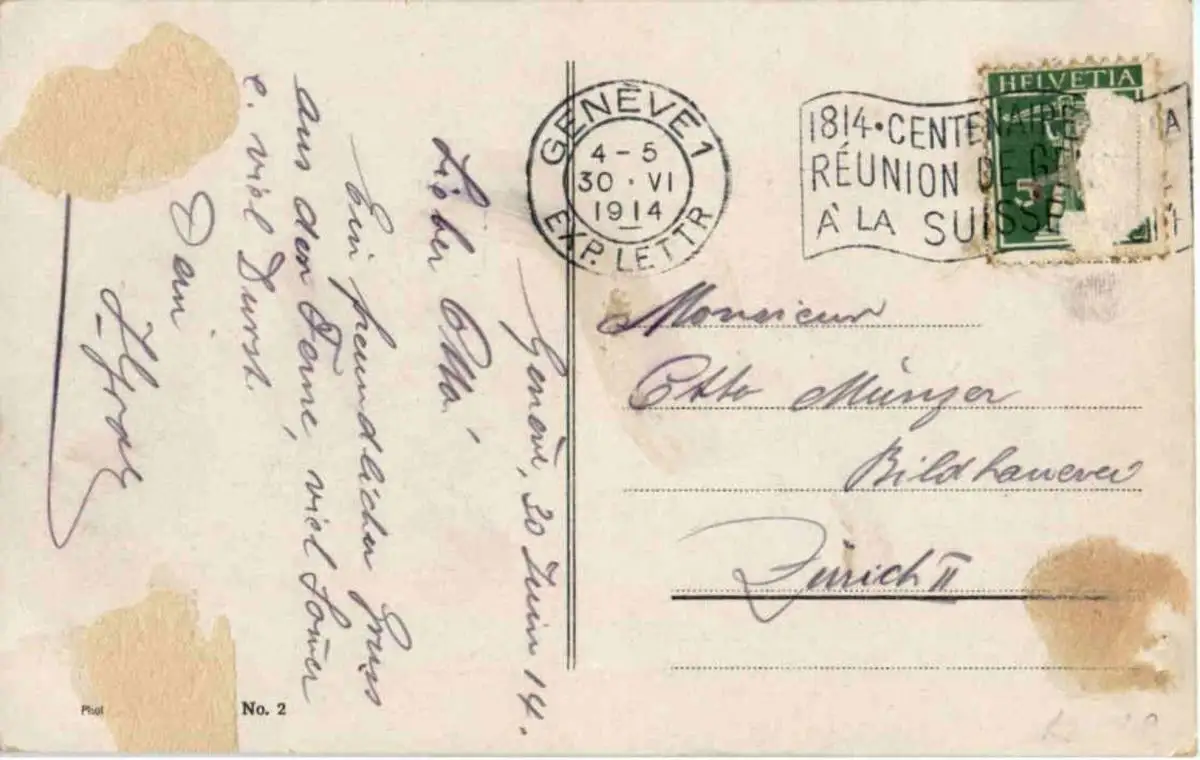 GENÈVE 1
4-5
30·VI
1914
EXP. LETTR
1814·CENTENAIRE A
RÉUNION DE GE
À LA SUISSE
HELVETIA
5
Genève, 30 Juin 14.
Lieber Otto!
Ein freundlicher Gruss
aus der Ferne, viel
e. viel Durst.
Dein
Monsieur
Otto Münzer
Bildhauerei
Zürich II
Phot
No. 2